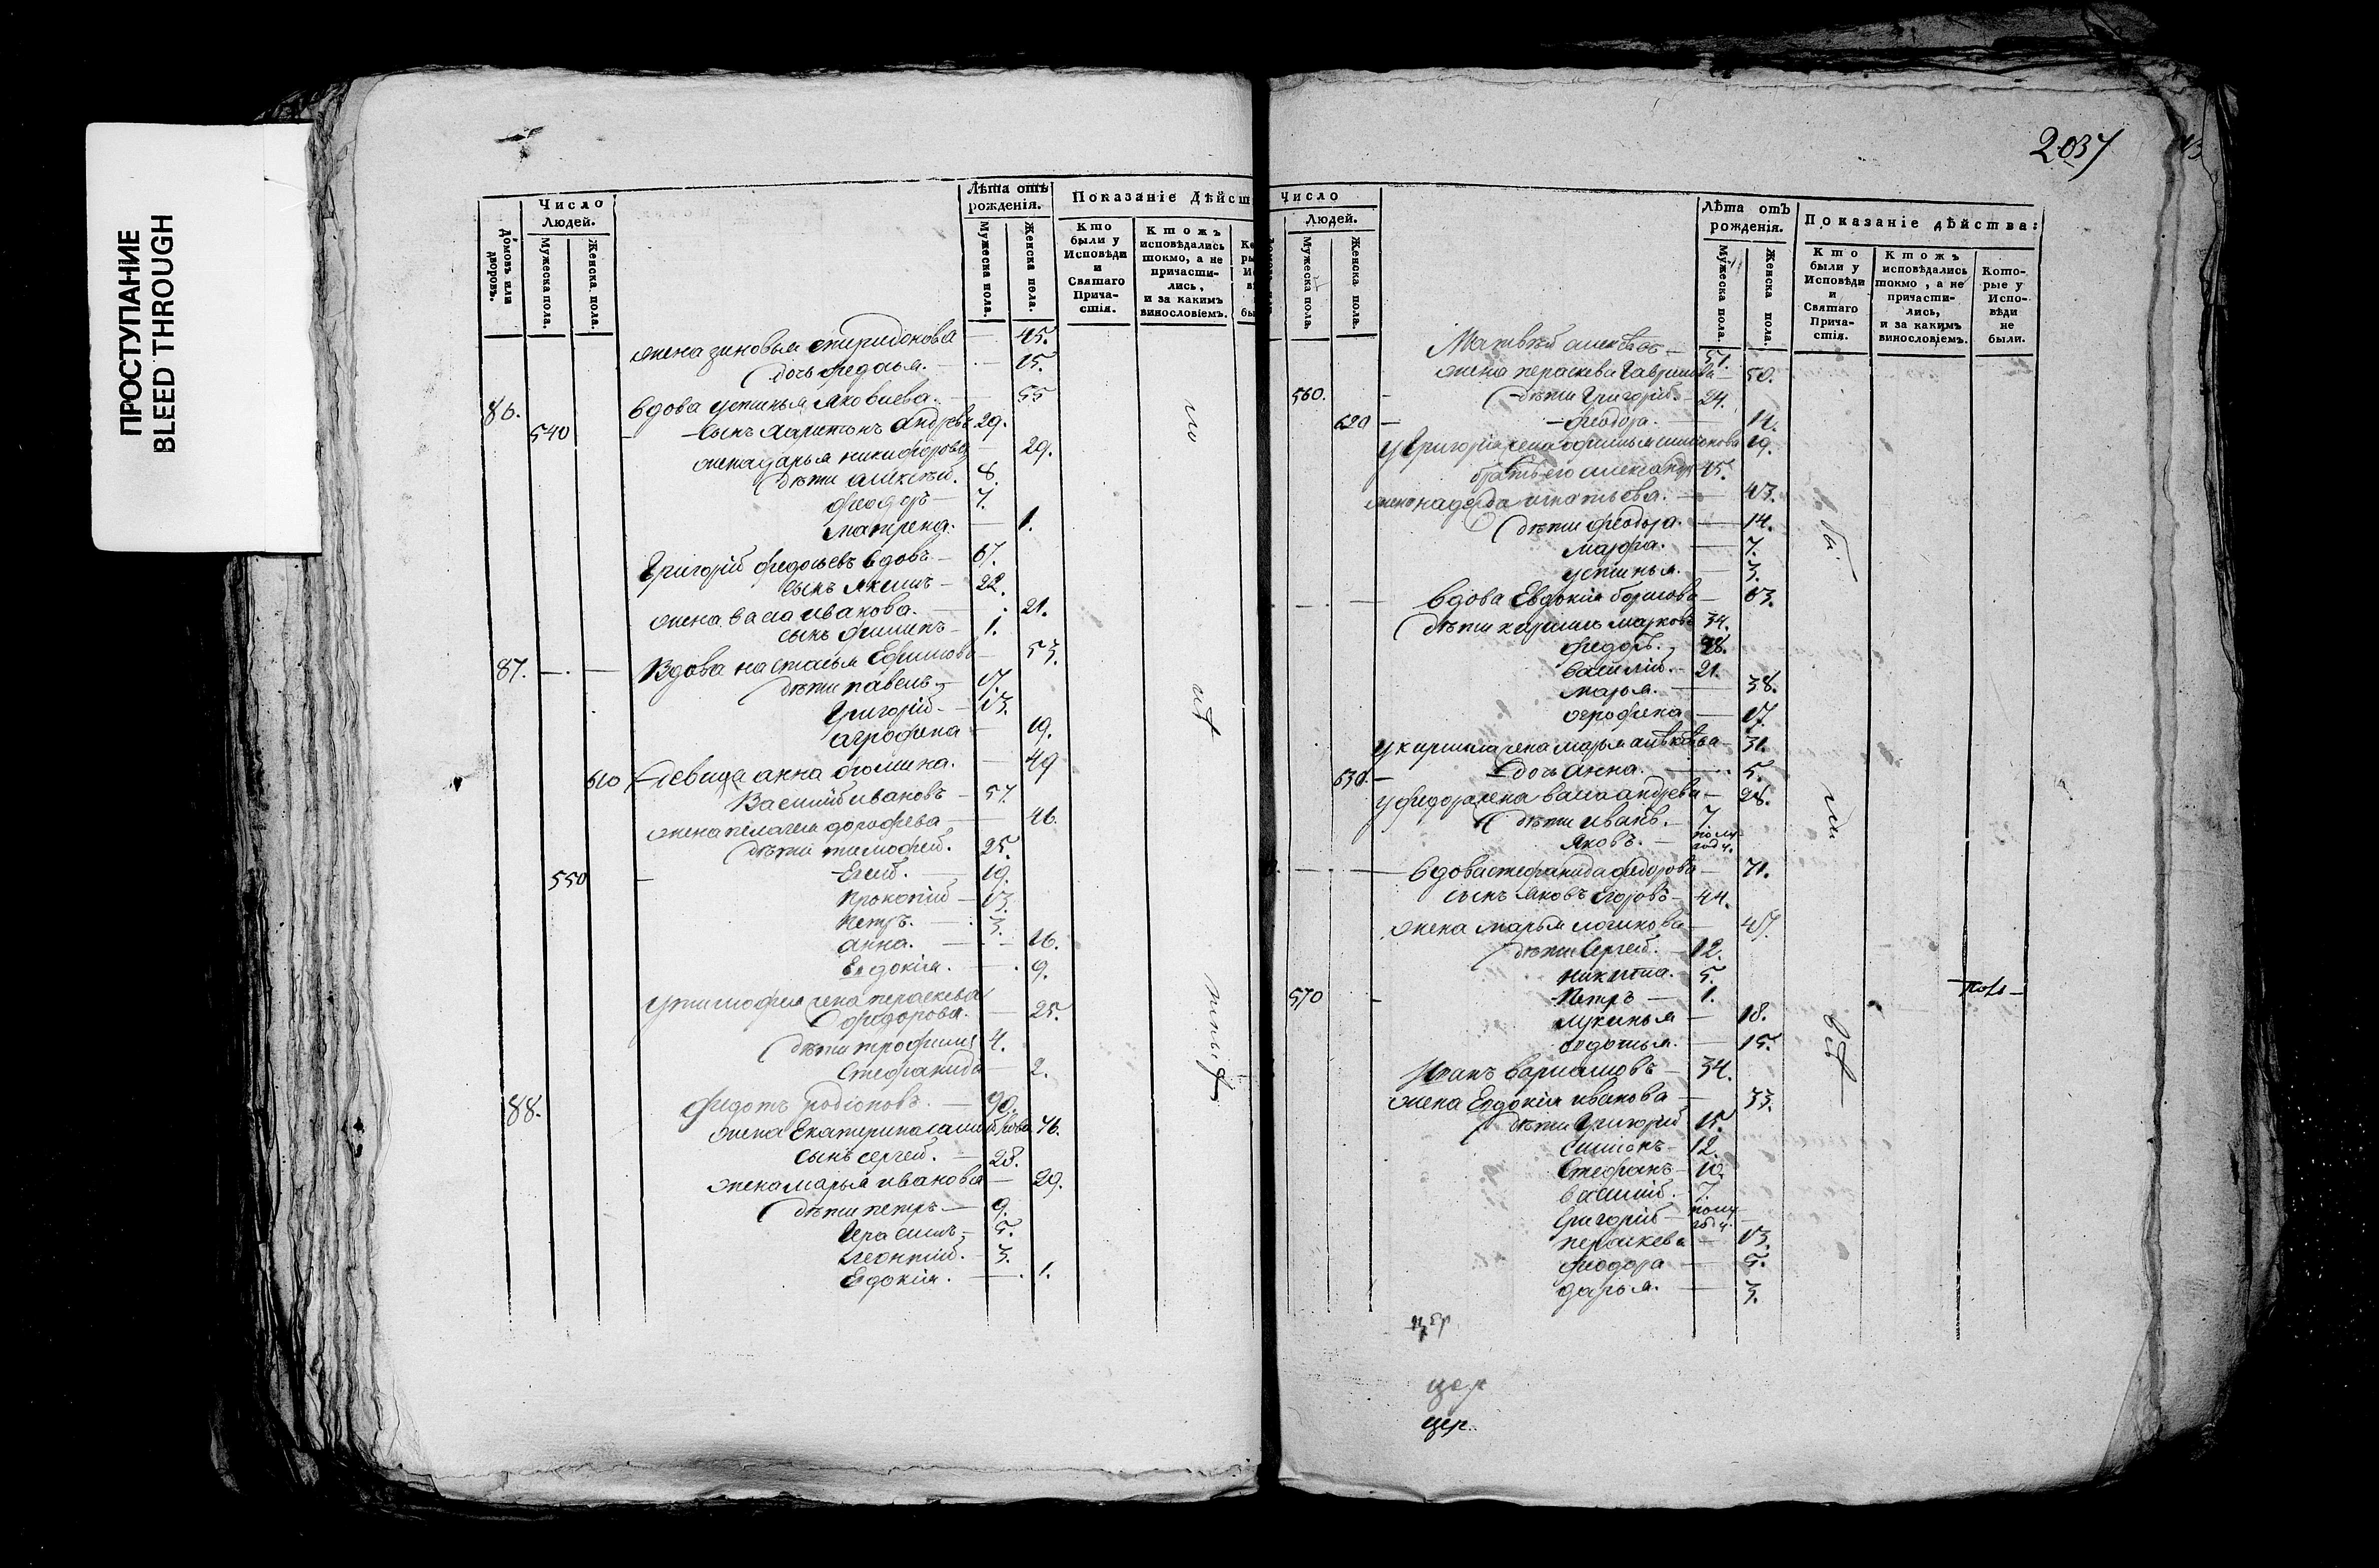 ПРОСТУПАНИЕ
BLEED THROUGH
Домовъ или дворовъ.
Число Людей.
Мужеска пола.
Женска пола.
Лѣта отъ рожденія.
Мужеска пола.
Женска пола.
Показаніе Дѣйст
Кто были у Исповѣди и Святаго Причастія.
Ктожъ исповѣдались токмо, а не причастились, и за какимъ винословіемъ.
жена зиновья спиридонова — 45.
дочь федосья. — 15.
86. вдова устинья яковлева. — 55
540 — сынъ харитонъ андреевъ 29.
жена дарья никифорова — 29.
дѣти алексѣй. 8.
феодоръ — 7.
матрена. — 1.
Григорій федосьевъ вдовъ — 67.
сынъ якимъ — 22.
жена васа иванова. — 21.
сынъ филипъ — 1.
87. — — Вдова настасья Ефимова — 53.
дѣти павелъ — 17.
Григорій — 13.
агрофена — 19.
610 девица анна фомина. — 49
Василій ивановъ — 57.
жена пелагея дорофеева — 46.
дѣти тимофей. 25.
550 — Елисей. — 19.
Прокопій — 13.
Петръ. — 3.
анна. — 16.
Евдокія. — 9.
у тимофея жена параскева
федорова. — 25.
дѣти трофимъ 4.
Стефанида — 2.
88. федотъ родіоновъ. — 90.
жена Екатерина 76.
сынъ сергей. — 28.
жена марья иванова — 29.
дѣти петръ — 9.
Герасимъ — 5.
Леонтій. — 3.
Евдокія. — 1.
2037
Число Людей.
Мужеска пола.
Женска пола.
Лѣта отъ рожденія.
Мужеска пола.
Женска пола.
Показаніе дѣйства:
Кто были у Исповѣди и Святаго Причастія.
Ктожъ исповѣдались токмо, а не причастились, и за какимъ винословіемъ.
Которые у Исповѣди не были.
Матвѣй алексѣевъ — 51.
жена параскева Гаврилова — 50.
560. — дѣти Григорій. — 24.
620 — феодора. — 14.
у Григорія жена офимья симионова 19.
братъ его александръ 45.
жена надежда игнатьева. — 43.
дѣти феодора. — 14.
марфа. — 7.
устинья. — 3.
вдова Евдокія борисова — 63.
дѣти кирилъ марковъ 34.
федоръ. — 28.
василій. — 21.
марья. — 38.
огрофена — 17.
у кирила жена марья алексѣева 31.
630. — дочь анна. — 5.
у федора жена васа андреева — 28.
дѣти иванъ. — 7.
яковъ. — полугодч.
вдова стефанида федорова — 71.
сынъ яковъ егоровъ — 44.
жена марья логинова — 47.
дѣти Сергей. — 12.
никита. — 5.
570 — Петръ — 1.
лукинья — 18.
евдотья. — 15.
Иванъ варламовъ — 34.
жена Евдокія иванова — 33.
дѣти Григорій 15.
Симіонъ — 12.
Стефанъ — 10.
василій. — 7.
Григорій — полугодч.
параскева — 13.
феодора — 5.
дарья. — 3.
цер
цер
цер.